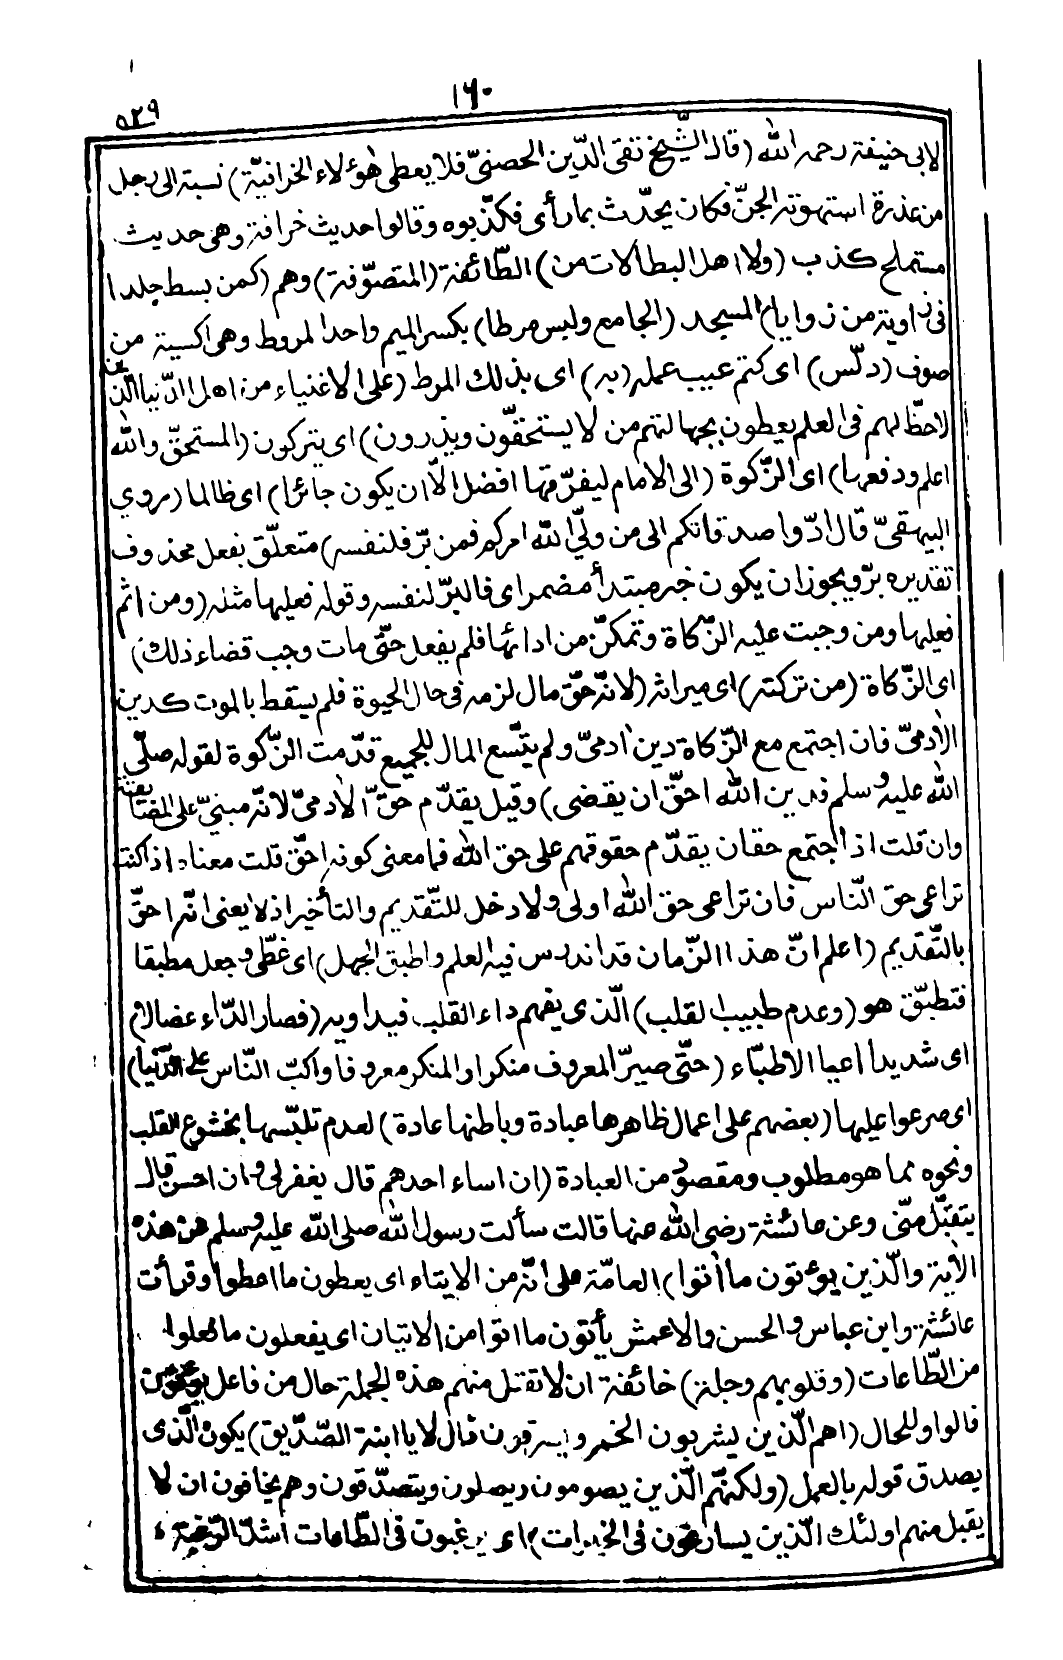 ١٦٠
٥٢٩
لابى حنيفة رحمه الله (قال الشّيخ تقى الدّين الحصنىّ فلا يعطى هؤلاء الخرافيّة) نسبة الى رجل
من عذرة استهوته الجنّ فكان يحدّث بما رأى فكذّبوه وقالوا حديث خرافة وهى حديث
مستملح كذب (ولا اهل البطالات من) الطّائفة (المتصوّفة) وهم (كمن بسط جلدا
فى زاوية من زوايا المسجد (الجامع ولبس مرطا) بكسر الميم واحد المروط وهى اكسية من
صوف (دلّس) اى كتم عيب عمله (به) اى بذلك المرط (على الاغنياء من اهل الدّنيا الّذين
لاحظّ لهم فى العلم يعطون بجهالتهم من لا يستحقّون ويذرون) اى يتركون (المستحقّ والله
اعلم ودفعها) اى الزّكوة (الى الامام ليفرّقها افضل الّا ان يكون جائرا) اى ظالما (روي
البيهقىّ قال ادّوا صدقاتكم الى من ولّى الله امركم فمن برّ فلنفسه) متعلّق بفعل محذوف
تقديره برّ ويجوز ان يكون خبر مبتدأ مضمر اى فالبرّ لنفسه وقوله فعليها مثله (ومن اثم
فعليها ومن وجبت عليه الزّكاة وتمكّن من ادائها فلم يفعل حتّى مات وجب قضاء ذلك)
اى الزّكاة (من تركته) اى ميراثه (لانّه حقّ مال لزمه فى حال الحيوة فلم يسقط بالموت كدين
الآدمىّ فان اجتمع مع الزّكاة دين آدمىّ ولم يتّسع المال للجميع قدّمت الزّكوة لقوله صلّى
الله عليه وسلم فدين الله احقّ ان يقضى) وقيل يقدّم حقّ الآدمىّ لانّه مبنىّ على المضايقة
وان قلت اذا اجتمع حقان يقدّم حقوقهم على حق الله فما معنى كونه احقّ قلت معناه اذا كنت
تراعى حق النّاس فان تراعى حق الله اولى ولا دخل للتّقديم والتأخير اذ لا يعنى انّه احقّ
بالتّقديم (اعلم انّ هذا الزّمان قد اندرس فيه العلم واطبق الجهل) اى غطّى وجعل مطبقا
فتطبّق هو (وعدم طبيب القلب) الّذى يفهم داء القلب فيداويه (فصار الدّاء عضالا)
اى شديدا اعيا الاطبّاء (حتّى صيرّ المعروف منكرا والمنكر معروفا واكبّ النّاس على الدّنيا)
اى صرعوا عليها (بعضهم على اعمال ظاهرها عبادة وباطنها عادة) لعدم تلبّسها بخشوع القلب
ونحوه مما هو مطلوب ومقصود من العبادة (ان اساء احدهم قال يغفر لى وان احسن قال
يتقبّل منّى وعن عائشة رضى الله عنها قالت سألت رسول الله صلى الله عليه وسلم عن هذه
الآية والّذين يؤتون ما آتوا) العامّة على انّه من الايتاء اى يعطون ما اعطوا وقرأت
عائشة وابن عباس والحسن والاعمش يأتون ما اتوا من الاتيان اى يفعلون ما فعلوا
من الطّاعات (وقلوبهم وجلة) خائفة ان لا تقبل منهم هذه الجملة حال من فاعل يؤتون
فالواو للحال (اهم الّذين يشربون الخمر ويسرقون قال لا يا ابنة الصّدّيق) يكون الّذى
يصدق قوله بالعمل (ولكنّهم الّذين يصومون ويصلون ويتصدّقون وهم يخافون ان لا
يقبل منهم اولئك الّذين يسارعون فى الخيرات) اى يرغبون فى الطّاعات اشدّ الرّغبة